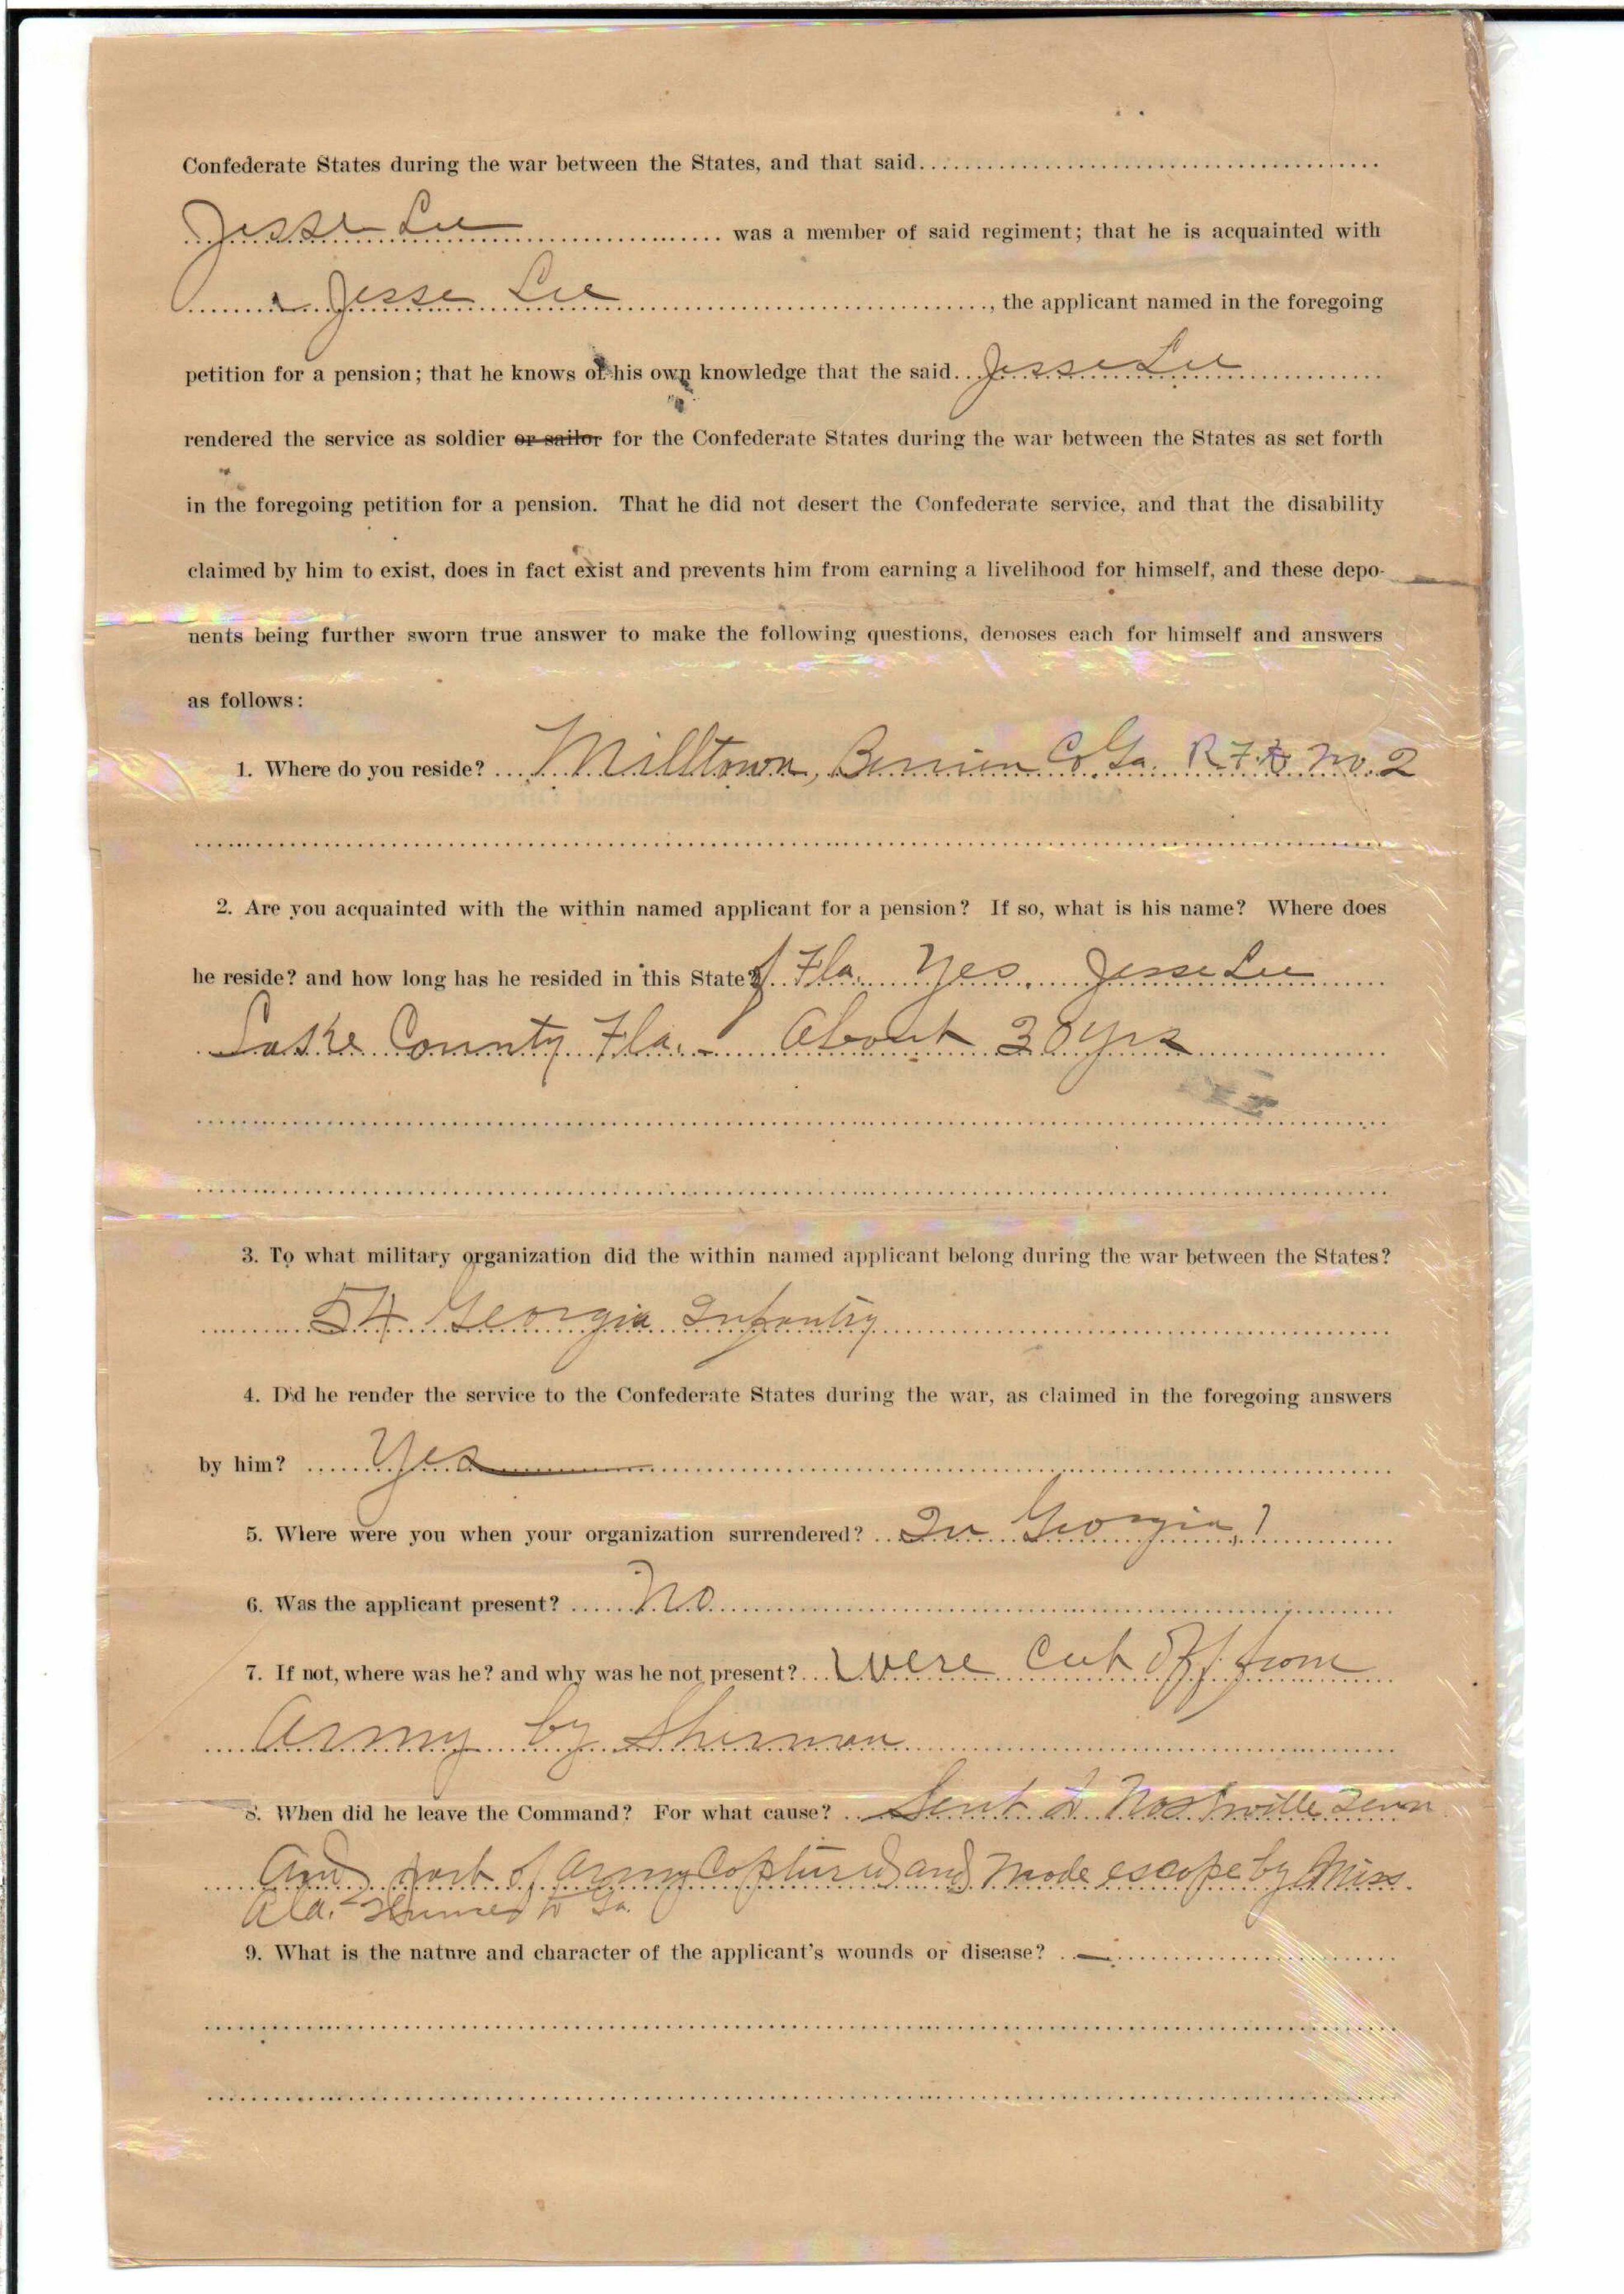 Confederate States during the war between the States, and that said
Jesse Lee was a member of said regiment; that he is acquainted with
Jesse Lee, the applicant named in the foregoing
petition for a pension; that he knows of his own knowledge that the said Jesse Lee
rendered the service as soldier or sailor for the Confederate States during the war between the States as set forth
in the foregoing petition for a pension. That he did not desert the Confederate service, and that the disability
claimed by him to exist, does in fact exist and prevents him from earning a livelihood for himself, and these depo-
nents being further sworn true answer to make the following questions, deposes each for himself and answers
as follows:
1. Where do you reside? Milltown, Berrien Co Ga. R F D No. 2
2. Are you acquainted with the within named applicant for a pension? If so, what is his name? Where does
he reside? and how long has he resided in this State? of Fla. Yes. Jesse Lee
Lake County Fla. - About 30 yrs
3. To what military organization did the within named applicant belong during the war between the States?
54 Georgia Infantry
4. Did he render the service to the Confederate States during the war, as claimed in the foregoing answers
by him? Yes
5. Where were you when your organization surrendered? In Georgia
6. Was the applicant present? No
7. If not, where was he? and why was he not present? Were Cut Off from
Army by Sherman
8. When did he leave the Command? For what cause? Sent to Nashville Tenn
And part of Army Captured and made escape by Miss.
Ala. to Ga.
9. What is the nature and character of the applicant's wounds or disease? —